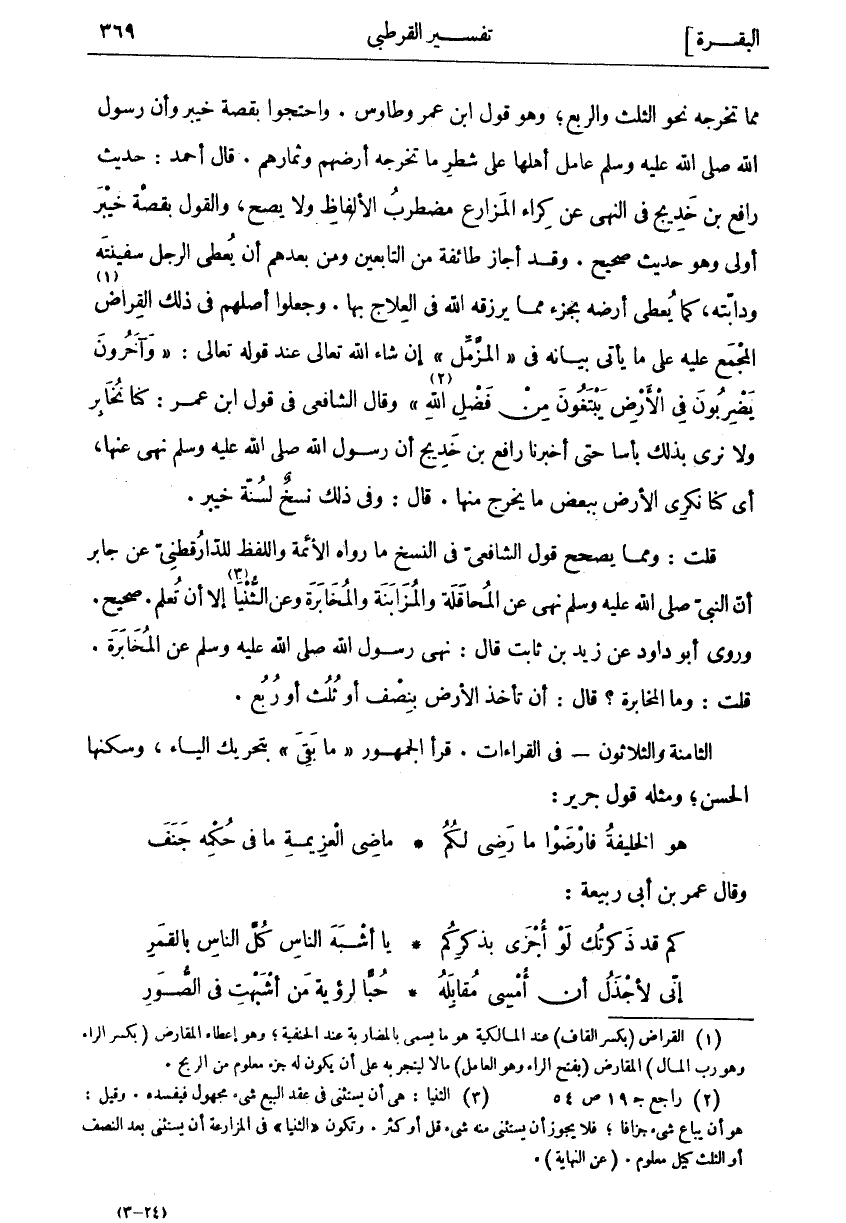 البقـــرة] تفســـير القرطبى ٣٦٩
مما تخرجه نحو الثلث والربع؛ وهو قول ابن عمر وطاوس . واحتجوا بقصة خيبر وأن رسول
الله صلى الله عليه وسلم عامل أهلها على شطرِ ما تخرجه أرضهم وثمارهم . قال أحمد : حديث
رافع بن خَدِيج فى النهى عن كِراء المَزارع مضطربُ الألفاظِ ولا يصح، والقول بقصّة خَيْبَر
أولى وهو حديث صحيح . وقـد أجاز طائفة من التابعين ومن بعدهم أن يُعطى الرجل سفينتَه
ودابّته، كما يُعطى أرضه بجزء ممـا يرزقه الله فى العِلاج بها . وجعلوا أصلهم فى ذلك القِراض (١)
المُجْمَع عليه على ما يأتى بيـانه فى « المـزَّمِّل » إن شاء الله تعالى عند قوله تعالى : « وَآخَرُونَ
يَضْرِبُونَ فِي الْأَرْضِ يَبْتَغُونَ مِنْ فَضْلِ اللَّهِ (٢) » وقال الشافعى فى قول ابن عمـر : كنا نُخَابِر
ولا نرى بذلك بأسا حتى أخبرنا رافع بن خَدِيج أن رسـول الله صلى الله عليه وسلم نهى عنها،
أى كنا نكرِى الأرض ببعض ما يخرج منها . قال : وفى ذلك نسخٌ لسُنّة خيبر .
قلت : وممـا يصحح قول الشافعىّ فى النسخ ما رواه الأئمة واللفظ للدّارَقُطنِىّ عن جابر
أنّ النبىّ صلى الله عليه وسلم نهى عن المُحاقَلَة والمُزَابَنَة والمُخَابَرَة وعن الثُّنْيَا (٣) إلا أن تُعلم. صحيح.
وروى أبو داود عن زيد بن ثابت قال : نهى رسـول الله صلى الله عليه وسلم عن المُخَابَرَة .
قلت : وما المخابرة ؟ قال : أن تأخذ الأرض بِنِصْف أو ثُلُث أو رُبُع .
الثامنة والثلاثون — فى القراءات . قرأ الجمهـور « ما بَقِىَ » بتحريك اليـاء ، وسكنها
الحسن؛ ومثله قول جرير :
هو الخليفةُ فارْضَوْا ما رَضِى لكُمُ * ماضِى الْعزِيمـةِ ما فى حُكْمِه جَنَفَ
وقال عمر بن أبى ربيعة :
كم قد ذَكرتُك لَوْ أُجْزَى بذكرِكُم * يا أشْـبَهَ الناسِ كُلَّ الناسِ بالقمَرِ
إنّى لأجْذَلُ أن أُمْسِى مُقابِلَهُ * حُبًّا لرؤية مَن أشْبَهْتِ فى الصُّـوَرِ
(١) القراض (بكسر القاف) عند المـالكية هو ما يسمى بالمضاربة عند الحنفية ؛ وهو إعطاء المقارض (بكسر الراء
وهو رب المـال) المقارض (بفتح الراء وهو العامل) مالا ليتجر به على أن يكون له جزء معلوم من الربح .
(٢) راجع جـ ١٩ ص ٥٤ (٣) الثنيا : هى أن يستثنى فى عقد البيع شىء مجهول فيفسده . وقيل :
هو أن يباع شىء جزافا ؛ فلا يجوز أن يستثنى منه شىء قل أو كثر . وتكون «الثنيا» فى المزارعة أن يستثنى بعد النصف
أو الثلث كيل معلوم . (عن النهاية) .
(٢٤–٣)